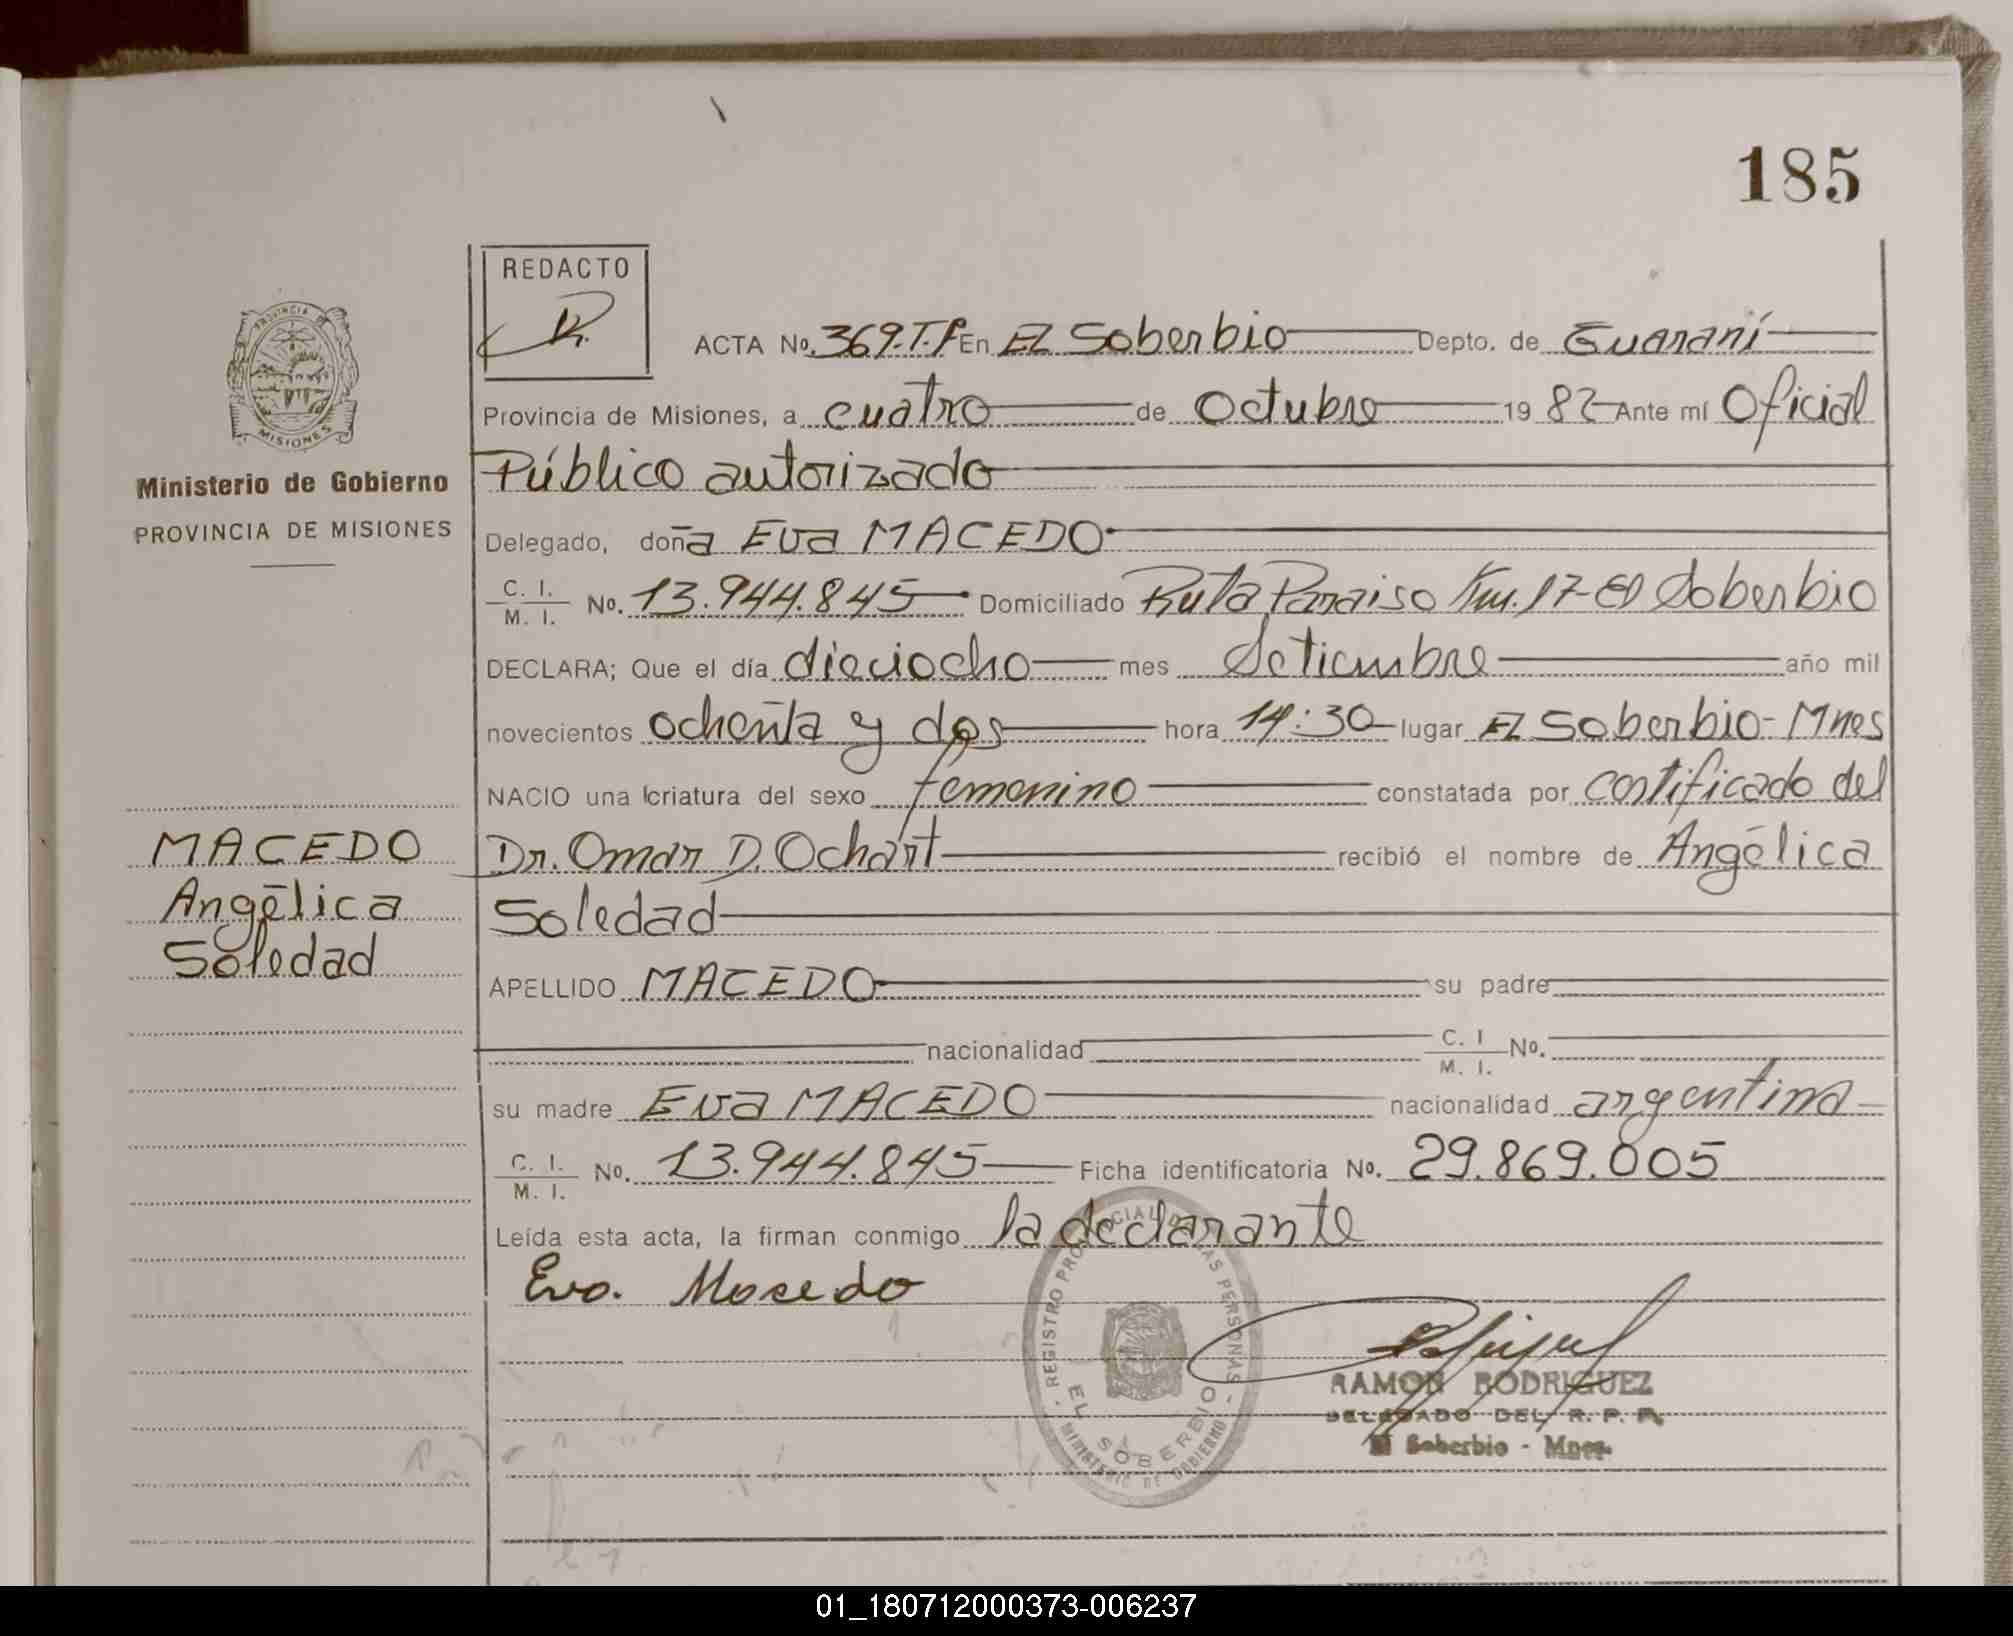 185
REDACTO
PROVINCIA DE
MISIONES
Ministerio de Gobierno
PROVINCIA DE MISIONES
MACEDO
Angélica
Soledad
ACTA No. 369.T.P En El Soberbio Depto. de Guaraní
Provincia de Misiones, a cuatro de Octubre 1982 Ante mí Oficial
Público autorizado
Delegado, doña Eva MACEDO
C. I. M. I. No. 13.944.845 Domiciliado Ruta Paraiso Km. 17-El Soberbio
DECLARA; Que el día dieciocho mes Setiembre año mil
novecientos ochenta y dos hora 14:30 lugar El Soberbio-Mnes
NACIO una criatura del sexo femenino constatada por certificado del
Dr. Omar D. Ochart recibió el nombre de Angélica
Soledad
APELLIDO MACEDO su padre
nacionalidad C. I M. I. No.
su madre Eva MACEDO nacionalidad argentina
C. I. M. I. No. 13.944.845 Ficha identificatoria No. 29.869.005
Leída esta acta, la firman conmigo la declarante
Eva. Macedo
REGISTRO PROVINCIAL DE LAS PERSONAS
EL SOBERBIO
MINISTERIO DE GOBIERNO
RAMON RODRIGUEZ
DELEGADO DEL R. P. P.
El Soberbio - Mnes.
01_180712000373-006237